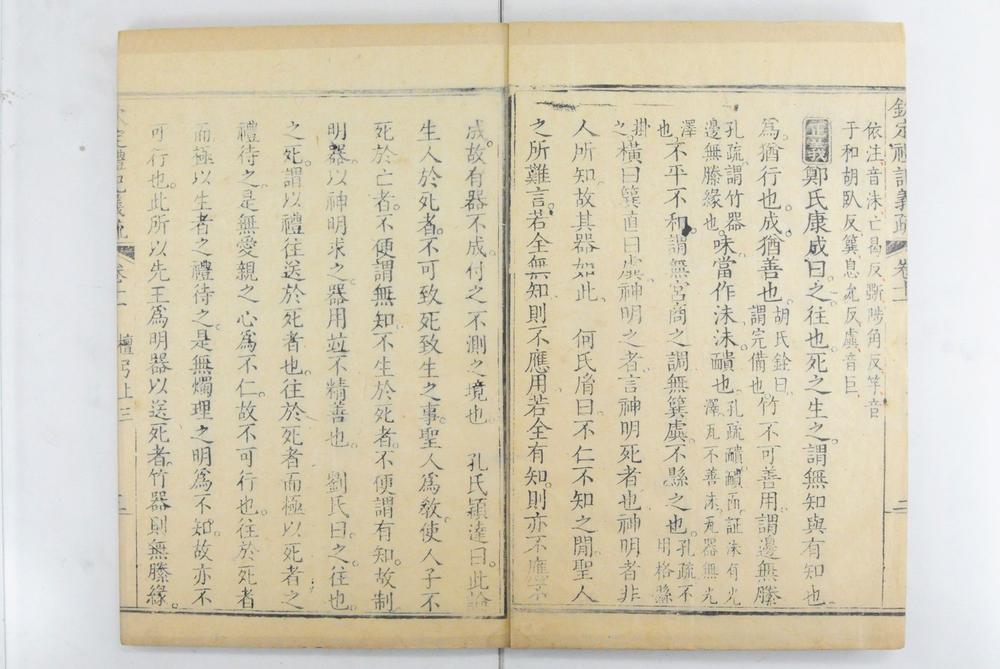 欽定禮記義疏 卷十一 二
依注音沬亡曷反斲陟角反竽音
于和胡臥反簨息允反虡音巨
正義 鄭氏康成曰之往也死之生之謂無知與有知也
為猶行也成猶善也 胡氏銓曰謂完備也 竹不可善用謂邊無縢
孔疏謂竹器邊無縢緣也 味當作沬沬靧也 孔疏靧靧面証沬有光澤瓦不善沬瓦器無光
澤也 不平不和謂無宮商之調無簨虡不縣之也 孔疏不用格縣
掛之 橫曰簨直曰虡神明之者言神明死者也神明者非
人所知故其器如此 何氏胤曰不仁不知之間聖人
之所難言若全無知則不應用若全有知則亦不應不
成故有器不成付之不測之境也 孔氏穎達曰此論
生人於死者不可致死致生之事聖人為教使人子不
死於亡者不便謂無知不生於死者不便謂有知故制
明器以神明求之器用並不精善也 劉氏曰之往也
之死謂以禮往送於死者也往於死者而極以死者之
禮待之是無愛親之心為不仁故不可行也往於死者
而極以生者之禮待之是無燭理之明為不知故亦不
可行也此所以先王為明器以送死者竹器則無縢緣
定禮記義疏 卷十一 檀弓上三 二